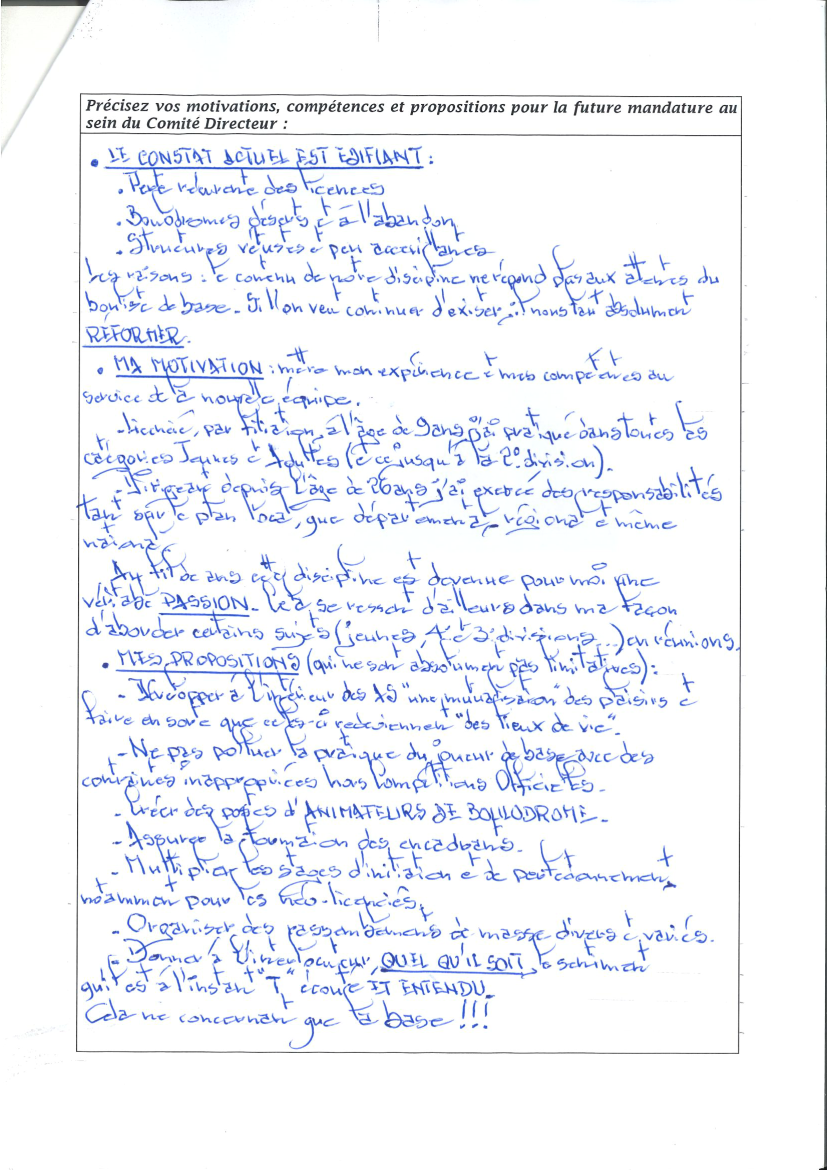 Précisez vos motivations, compétences et propositions pour la future mandature au
sein du Comité Directeur :
• LE CONSTAT ACTUEL EST EDIFIANT :
. Perte récurrente des licences
. Boulodromes déserts et à l'abandon
. Structures vétustes et peu accueillantes
Les raisons : le contenu de notre discipline ne répond pas aux attentes du
bouliste de base. Si l'on veut continuer d'exister, il nous faut absolument
REFORMER.
• MA MOTIVATION : mettre mon expérience et mes compétences au
service de la nouvelle équipe.
- Licencié, par filiation, à l'âge de 9 ans j'ai pratiqué dans toutes les
catégories Jeunes et Adultes (et ce jusqu'à la 2° division).
- Dirigeant depuis l'âge de 26 ans j'ai exercé des responsabilités
tant sur le plan local, que départemental, régional et même
national.
Au fil de ans cette discipline est devenue pour moi une
véritable PASSION. Cela se ressent d'ailleurs dans ma façon
d'aborder certains sujets (jeunes, 4° et 3° divisions...) en réunions.
• MES PROPOSITIONS (qui ne sont absolument pas limitatives) :
- Développer à l'intérieur des AS "une mutualisation" des plaisirs et
faire en sorte que celles-ci redeviennent "des lieux de vie".
- Ne pas polluer la pratique du joueur de base avec des
contraintes inappropriées hors Compétitions Officielles.
- Créer des postes d'ANIMATEURS DE BOULODROME.
- Assurer la formation des encadrants.
- Multiplier les stages d'initiation et de perfectionnement,
notamment pour les néo-licenciés.
- Organiser des rassemblements de masse divers et variés.
- Donner à l'interlocuteur, QUEL QU'IL SOIT, le sentiment
qu'il est à l'instant "T" écouté ET ENTENDU.
Cela ne concernant que la base !!!